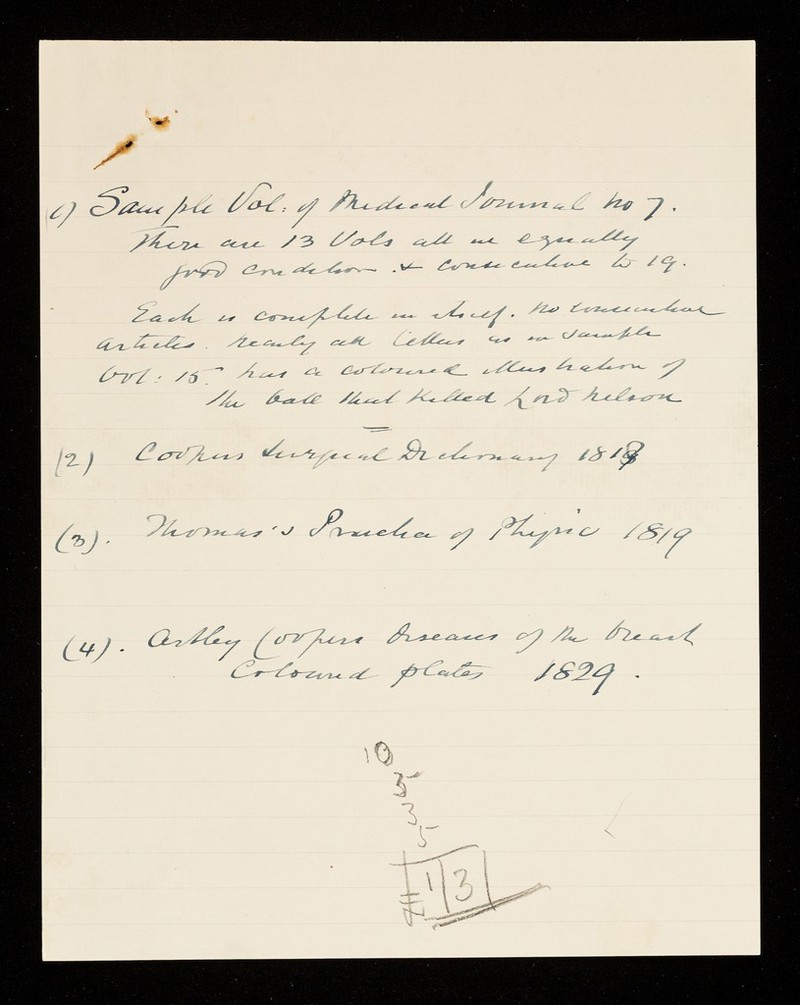 (1) Sample Vol: of Medical Journal No 7.
There are 13 Vols all in equally
good condition. & consecutive to 19.
Each is complete in itself. no consecutive
articles. nearly all letters as in sample
Vol: 15. has a coloured illustration of
the ball that killed Lord Nelson
(2) Coopers Surgical Dictionary 1818
(3). Thomas's Practice of Physic 1819
(4). Astley Coopers Diseases of the breast
Coloured plates 1829.
10
3
3
5
£1/3